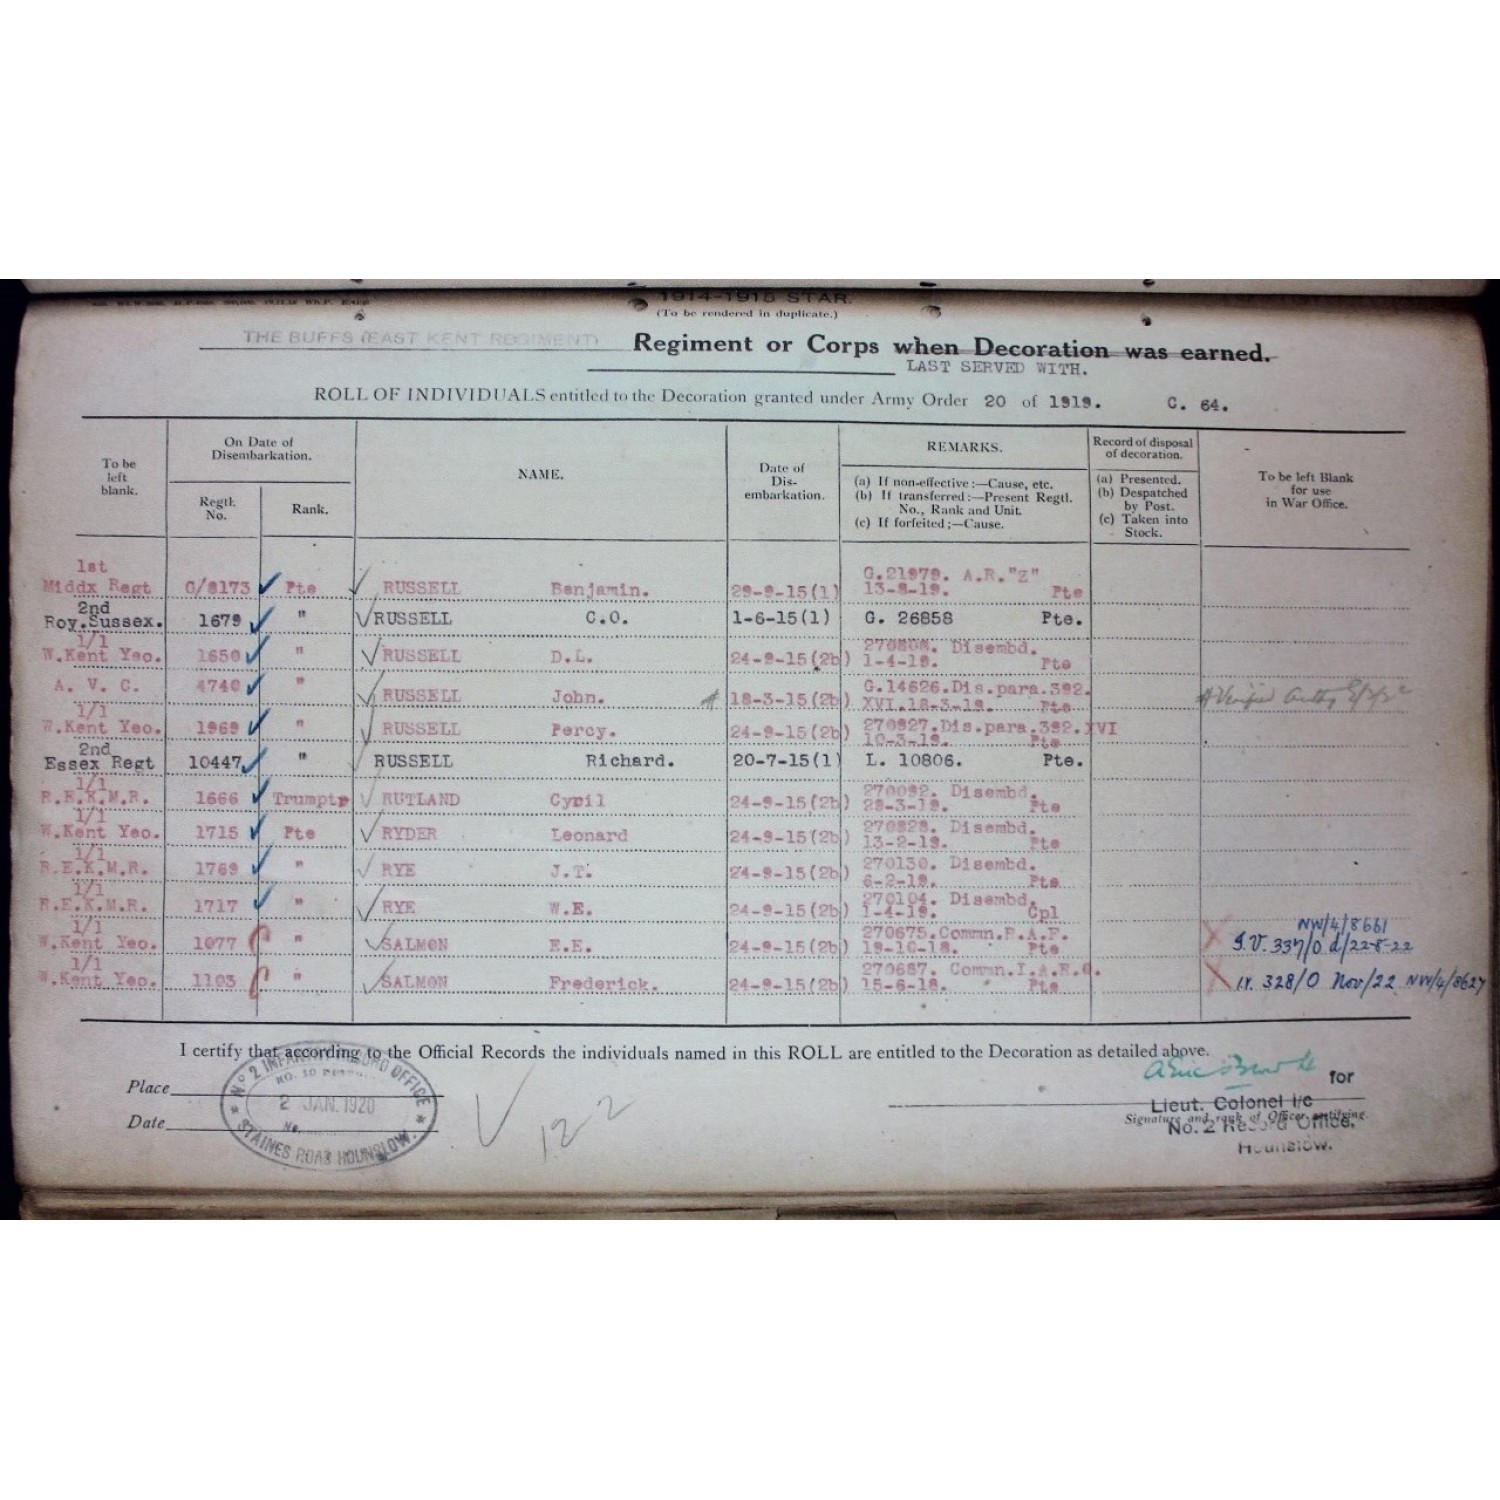 1914-1915 STAR.
(To be rendered in duplicate.)
THE BUFFS (EAST KENT REGIMENT) Regiment or Corps when Decoration was earned.
LAST SERVED WITH.
ROLL OF INDIVIDUALS entitled to the Decoration granted under Army Order 20 of 1919. C. 64.
To be left blank.
On Date of Disembarkation.
Regtl. No.
Rank.
NAME.
Date of Dis-embarkation.
REMARKS.
(a) If non-effective:—Cause, etc.
(b) If transferred:—Present Regtl. No., Rank and Unit.
(c) If forfeited;—Cause.
Record of disposal of decoration.
(a) Presented.
(b) Despatched by Post.
(c) Taken into Stock.
To be left Blank for use in War Office.
1st
Middx Regt G/8173 Pte RUSSELL Benjamin. 29-9-15(1) G.21979. A.R."Z" 13-8-19. Pte
2nd
Roy.Sussex. 1679 " RUSSELL C.O. 1-6-15(1) G. 26858 Pte.
1/1
W.Kent Yeo. 1650 " RUSSELL D.L. 24-9-15(2b) Disembd. 1-4-19. Pte
A. V. C. 4740 " RUSSELL John. # 18-3-15(2b) G.14626.Dis.para.392. XVI.18-3-19. Pte
1/1
W.Kent Yeo. 1969 " RUSSELL Percy. 24-9-15(2b) 270827.Dis.para.392.XVI 10-3-19. Pte
2nd
Essex Regt 10447 " RUSSELL Richard. 20-7-15(1) L. 10806. Pte.
1/1
R.E.K.M.R. 1666 Trumptr RUTLAND Cyril 24-9-15(2b) 270092. Disembd. 29-3-19. Pte
1/1
W.Kent Yeo. 1715 Pte RYDER Leonard 24-9-15(2b) 270828. Disembd. 13-2-19. Pte
1/1
R.E.K.M.R. 1769 " RYE J.T. 24-9-15(2b) 270130. Disembd. 6-2-19. Pte
1/1
R.E.K.M.R. 1717 " RYE W.E. 24-9-15(2b) 270104. Disembd. 1-4-19. Cpl
1/1
W.Kent Yeo. 1077 " SALMON E.E. 24-9-15(2b) 270675.Commn.R.A.F. 19-10-18. Pte NW/4/8661 I.V. 337/0 d/22-8-22
1/1
W.Kent Yeo. 1103 " SALMON Frederick. 24-9-15(2b) 270687. Commn.I.A.R.O. 15-6-18. Pte I.V. 328/0 Nov/22 NW/4/8627
I certify that according to the Official Records the individuals named in this ROLL are entitled to the Decoration as detailed above.
Place
Date
No 2 INFANTRY RECORD OFFICE
2 JAN. 1920
No.
STAINES ROAD HOUNSLOW.
122
for
Lieut. Colonel i/c
Signature and rank of Officer certifying.
No. 2 Record Office,
Hounslow.